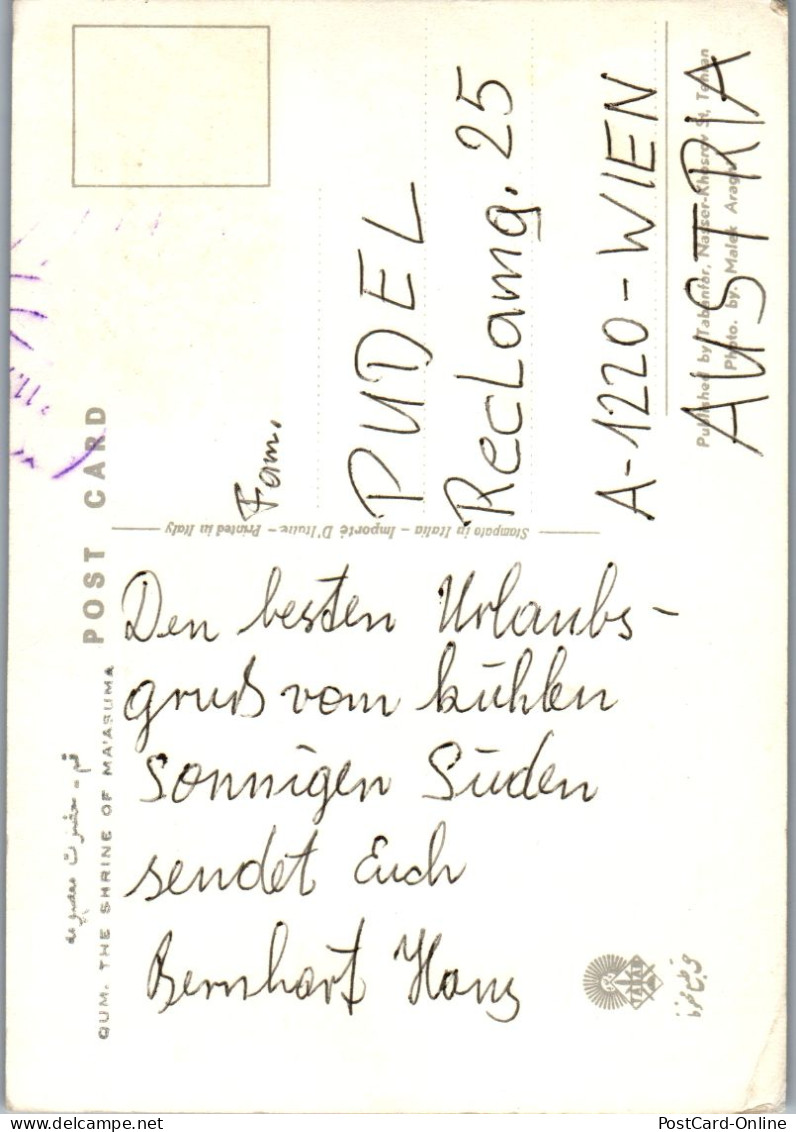 قم - حضرت معصومه
QUM. THE SHRINE OF MA'ASUMA
POST CARD
Den besten Urlaubs-
gruß vom kühlen
sonnigen Süden
sendet Euch
Bernhart Hans
Stampato in Italia – Importé D'Italie – Printed in Italy
Fam.
PUDEL
Reclamg. 25
A-1220-WIEN
AUSTRIA
Published by Tabanfar, Nasser-Khosrov St, Tehran
Photo. by. Malek Aragh
www.delcampe.net
PostCard-Online